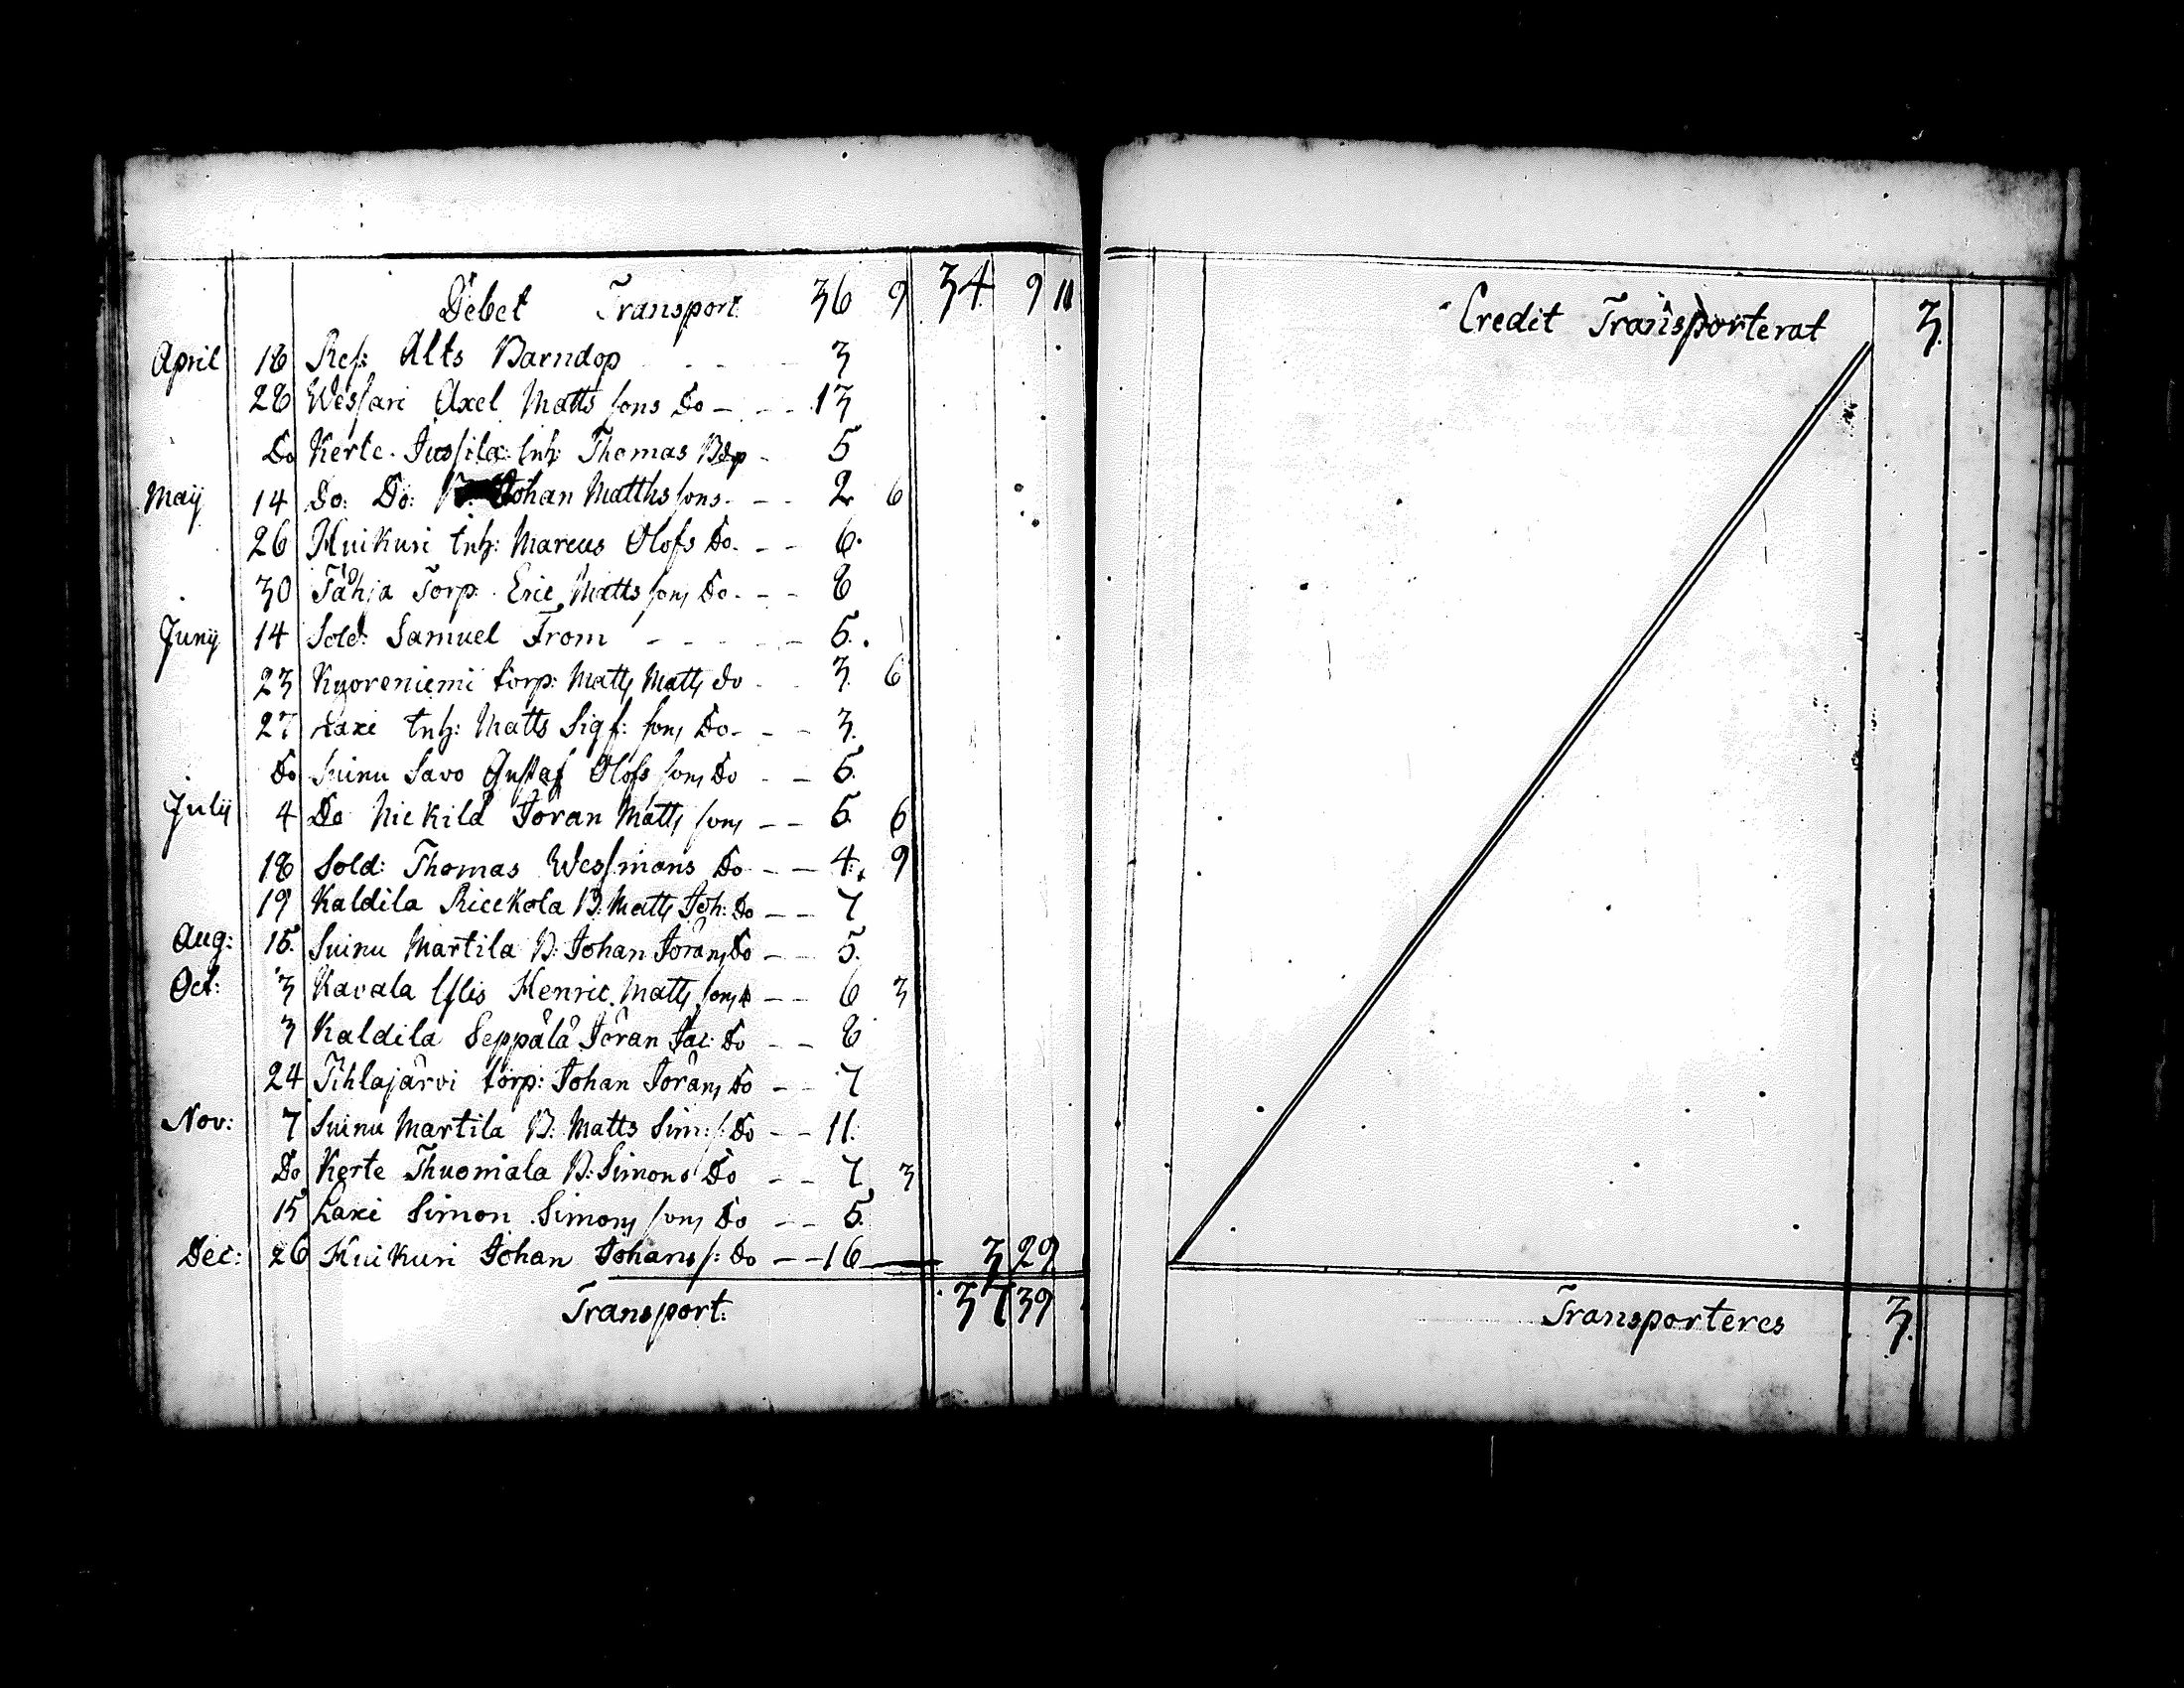 Debet Transport 36 9 34 9 10
April 18 Res: Alts Barndop - - - 3
28 Wessari Axel Matts sons Do - - - 13
Do Kerte Jussila: Inh: Thomas Bdp - 5
Maij 14 Do: Do: Johan Matthssons - - - 2 6
26 Huikuri Inh: Marcus Olofs Do - - 6
30 Tåhja Torp. Eric Mattssons Do - - - 8
Junij 14 Sold: Samuel From - - - - 5
23 Kuoreniemi torp: Matts Matts do - - 3 6
27 Laxi Inh: Matts Sigf: sons Do - - - 3
Do Suinu Savo Gustaf Olofs sons Do - - 5
Julij 4 Do Nickilä Jöran Matts sons - - 5 6
18 Sold: Thomas Wessmans Do - - 4 9
19 Kaldila Rieckola B: Matts Joh: Do - - 7
Aug: 15 Suinu Martila B: Johan Jörans Do - - 5
Oct: 3 Kavala Henric Matts sons - - 6 3
3 Kaldila Seppälä Jöran Jac: Do - - 8
24 Pihlajärvi torp: Johan Jörans Do - - 7
Nov: 7 Suinu Martila B: Matts Sim: s: Do - - 11
Do Kerte Thuomala B: Simons Do - - 7 3
15 Laxi Simon Simons sons Do - - 5
Dec: 26 Huikuri Johan Johans s: Do - - 16 3 29
Transport: 37 39
Credit Transporterat 3
Transporteres 3